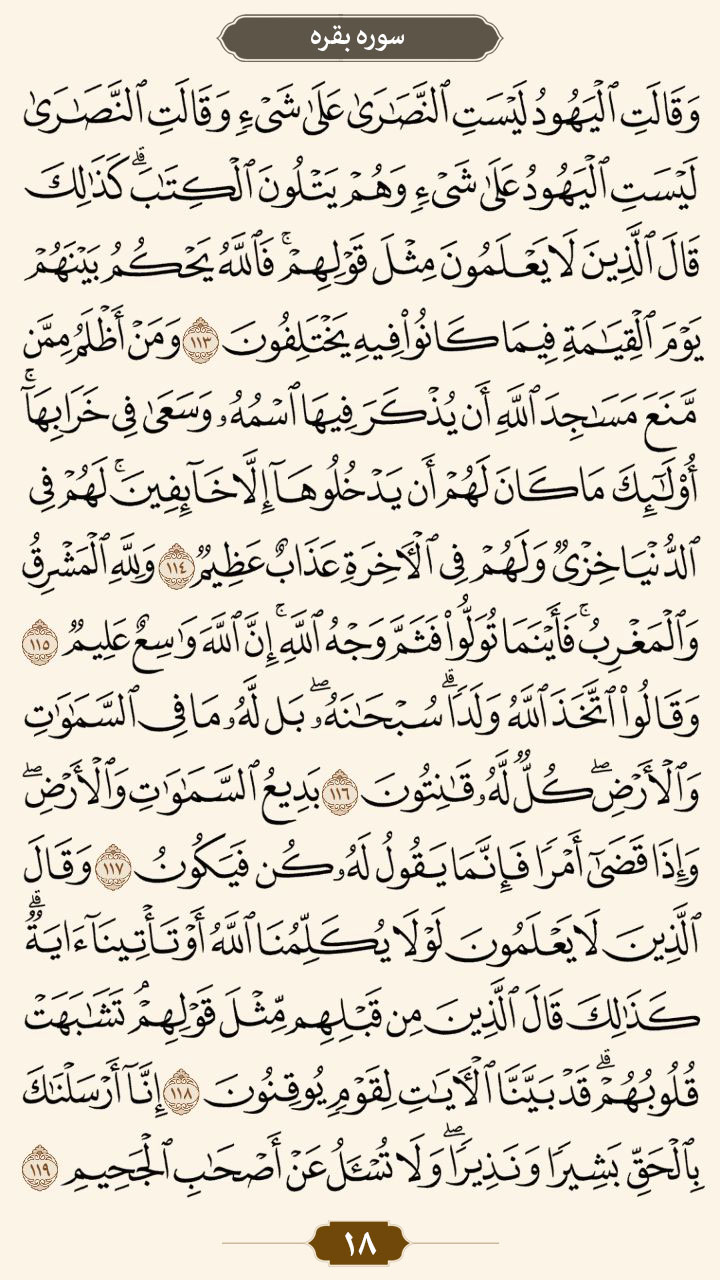 سوره بقره
وَقَالَتِ ٱلۡيَهُودُ لَيۡسَتِ ٱلنَّصَٰرَىٰ عَلَىٰ شَيۡءٖ وَقَالَتِ ٱلنَّصَٰرَىٰ
لَيۡسَتِ ٱلۡيَهُودُ عَلَىٰ شَيۡءٖ وَهُمۡ يَتۡلُونَ ٱلۡكِتَٰبَۗ كَذَٰلِكَ
قَالَ ٱلَّذِينَ لَا يَعۡلَمُونَ مِثۡلَ قَوۡلِهِمۡۚ فَٱللَّهُ يَحۡكُمُ بَيۡنَهُمۡ
يَوۡمَ ٱلۡقِيَٰمَةِ فِيمَا كَانُواْ فِيهِ يَخۡتَلِفُونَ ١١٣ وَمَنۡ أَظۡلَمُ مِمَّن
مَّنَعَ مَسَٰجِدَ ٱللَّهِ أَن يُذۡكَرَ فِيهَا ٱسۡمُهُۥ وَسَعَىٰ فِي خَرَابِهَآۚ
أُوْلَٰٓئِكَ مَا كَانَ لَهُمۡ أَن يَدۡخُلُوهَآ إِلَّا خَآئِفِينَۚ لَهُمۡ فِي
ٱلدُّنۡيَا خِزۡيٞ وَلَهُمۡ فِي ٱلۡأٓخِرَةِ عَذَابٌ عَظِيمٞ ١١٤ وَلِلَّهِ ٱلۡمَشۡرِقُ
وَٱلۡمَغۡرِبُۚ فَأَيۡنَمَا تُوَلُّواْ فَثَمَّ وَجۡهُ ٱللَّهِۚ إِنَّ ٱللَّهَ وَٰسِعٌ عَلِيمٞ ١١٥
وَقَالُواْ ٱتَّخَذَ ٱللَّهُ وَلَدٗاۗ سُبۡحَٰنَهُۥۖ بَل لَّهُۥ مَا فِي ٱلسَّمَٰوَٰتِ
وَٱلۡأَرۡضِۖ كُلّٞ لَّهُۥ قَٰنِتُونَ ١١٦ بَدِيعُ ٱلسَّمَٰوَٰتِ وَٱلۡأَرۡضِۖ
وَإِذَا قَضَىٰٓ أَمۡرٗا فَإِنَّمَا يَقُولُ لَهُۥ كُن فَيَكُونُ ١١٧ وَقَالَ
ٱلَّذِينَ لَا يَعۡلَمُونَ لَوۡلَا يُكَلِّمُنَا ٱللَّهُ أَوۡ تَأۡتِينَآ ءَايَةٞۗ
كَذَٰلِكَ قَالَ ٱلَّذِينَ مِن قَبۡلِهِم مِّثۡلَ قَوۡلِهِمۡۘ تَشَٰبَهَتۡ
قُلُوبُهُمۡۗ قَدۡ بَيَّنَّا ٱلۡأٓيَٰتِ لِقَوۡمٖ يُوقِنُونَ ١١٨ إِنَّآ أَرۡسَلۡنَٰكَ
بِٱلۡحَقِّ بَشِيرٗا وَنَذِيرٗاۖ وَلَا تُسۡـَٔلُ عَنۡ أَصۡحَٰبِ ٱلۡجَحِيمِ ١١٩
١٨